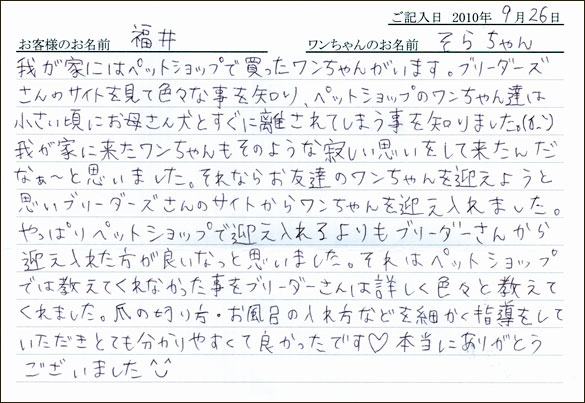 ご記入日 2010年 9月26日
お客様のお名前 福井 ワンちゃんのお名前 そらちゃん
我が家にはペットショップで買ったワンちゃんがいます。ブリーダーズ
さんのサイトを見て色々な事を知り、ペットショップのワンちゃん達は
小さい頃にお母さん犬とすぐに離されてしまう事を知りました。
我が家に来たワンちゃんもそのような寂しい思いをして来たんだ
なぁ〜と思いました。それならお友達のワンちゃんを迎えようと
思いブリーダーズさんのサイトからワンちゃんを迎え入れました。
やっぱりペットショップで迎え入れるよりもブリーダーさんから
迎え入れた方が良いなっと思いました。それはペットショップ
では教えてくれなかった事をブリーダーさんは詳しく色々と教えて
くれました。爪の切り方・お風呂の入れ方などを細かく指導をして
いただきとても分かりやすくて良かったです♡本当にありがとう
ございました^^